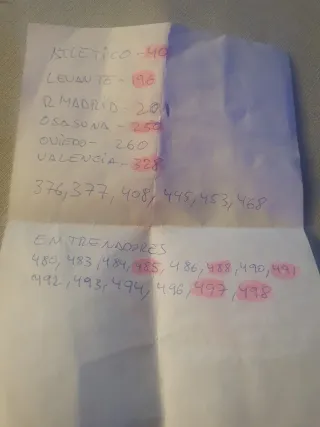 ATLETICO - 40
LEVANTE - 96
R MADRID - 201
OSASUNA - 250
OVIEDO - 260
VALENCIA - 328
376, 377, 408, 445, 453, 468
ENTRENADORES
480, 483, 484, 485, 486, 488, 490, 491
492, 493, 494, 496, 497, 498